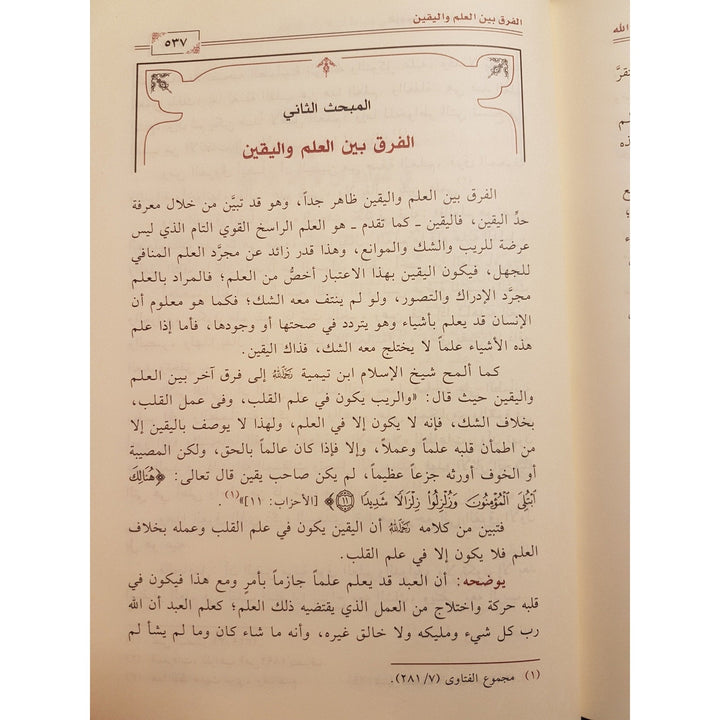 الفرق بين العلم واليقين
٥٣٧
المبحث الثاني
الفرق بين العلم واليقين
الفرق بين العلم واليقين ظاهر جداً، وهو قد تبيَّن من خلال معرفة
حدِّ اليقين، فاليقين ـ كما تقدم ـ هو العلم الراسخ القوي التام الذي ليس
عرضة للريب والشك والموانع، وهذا قدر زائد عن مجرَّد العلم المنافي
للجهل، فيكون اليقين بهذا الاعتبار أخصُّ من العلم؛ فالمراد بالعلم
مجرَّد الإدراك والتصور، ولو لم ينتف معه الشك؛ فكما هو معلوم أن
الإنسان قد يعلم بأشياء وهو يتردد في صحتها أو وجودها، فأما إذا علم
هذه الأشياء علماً لا يختلج معه الشك، فذاك اليقين.
كما ألمح شيخ الإسلام ابن تيمية رحمه الله إلى فرق آخر بين العلم
واليقين حيث قال: «والريب يكون في علم القلب، وفى عمل القلب،
بخلاف الشك، فإنه لا يكون إلا في العلم، ولهذا لا يوصف باليقين إلا
من اطمأن قلبه علماً وعملاً، وإلا فإذا كان عالماً بالحق، ولكن المصيبة
أو الخوف أورثه جزعاً عظيماً، لم يكن صاحب يقين قال تعالى: ﴿هُنَالِكَ
ٱبْتُلِىَ ٱلْمُؤْمِنُونَ وَزُلْزِلُوا۟ زِلْزَالًا شَدِيدًا ١١﴾ [الأحزاب: ١١]»(١).
فتبين من كلامه رحمه الله أن اليقين يكون في علم القلب وعمله بخلاف
العلم فلا يكون إلا في علم القلب.
يوضحه: أن العبد قد يعلم علماً جازماً بأمرٍ ومع هذا فيكون في
قلبه حركة واختلاج من العمل الذي يقتضيه ذلك العلم؛ كعلم العبد أن الله
رب كل شيء ومليكه ولا خالق غيره، وأنه ما شاء كان وما لم يشأ لم
(١) مجموع الفتاوى (٢٨١/٧).